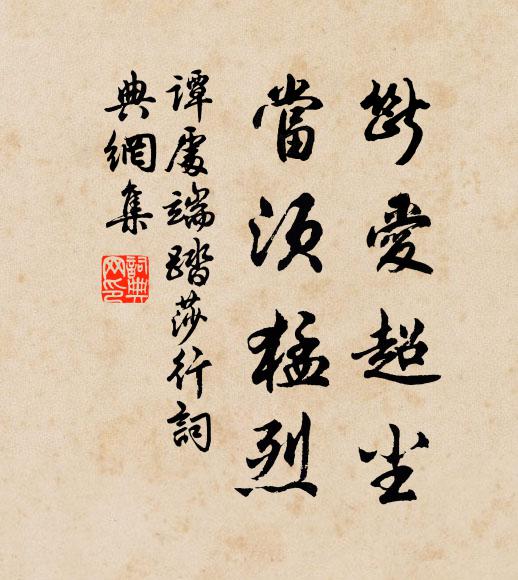 斷愛超尘
當須猛烈
譚處端踏莎行詞
典網集
詞典
网印